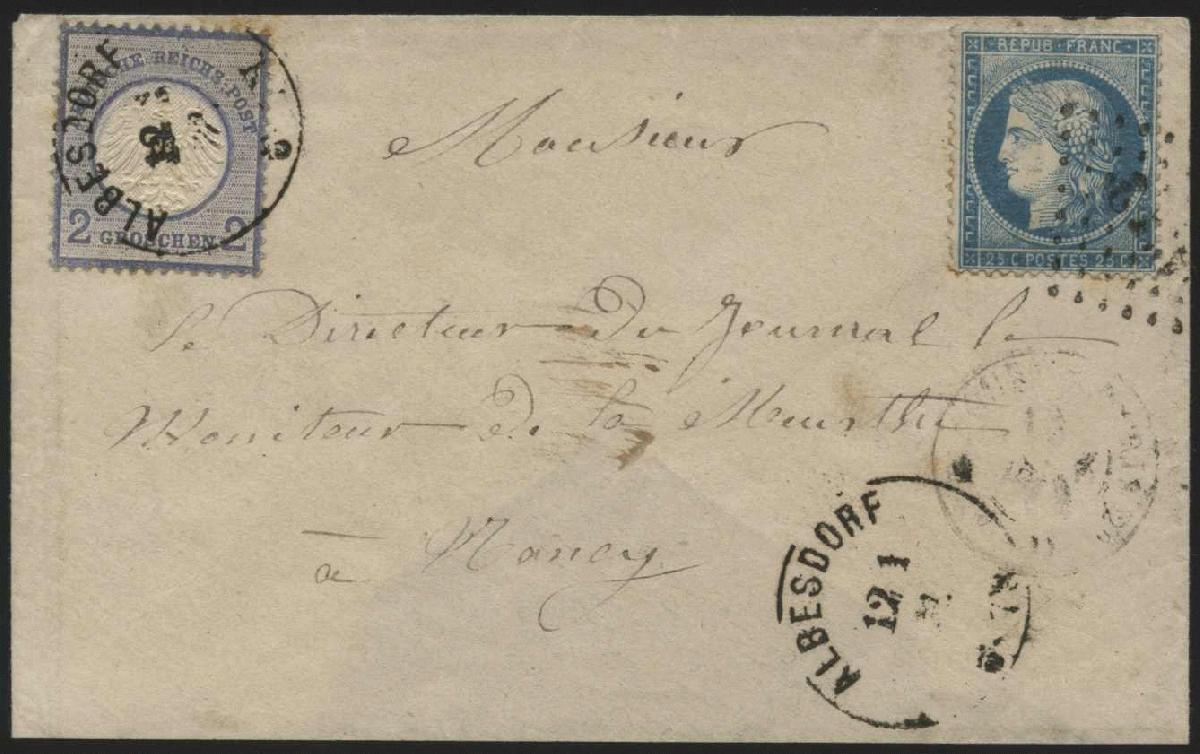 DEUTSCHE REICHS-POST
2 GROSCHEN 2
ALBESDORF
12
REPUB FRANC
25 C POSTES 25 C
Monsieur
le Directeur du Journal le
Moniteur de la Meurthe
à Nancy
ALBESDORF
12 1